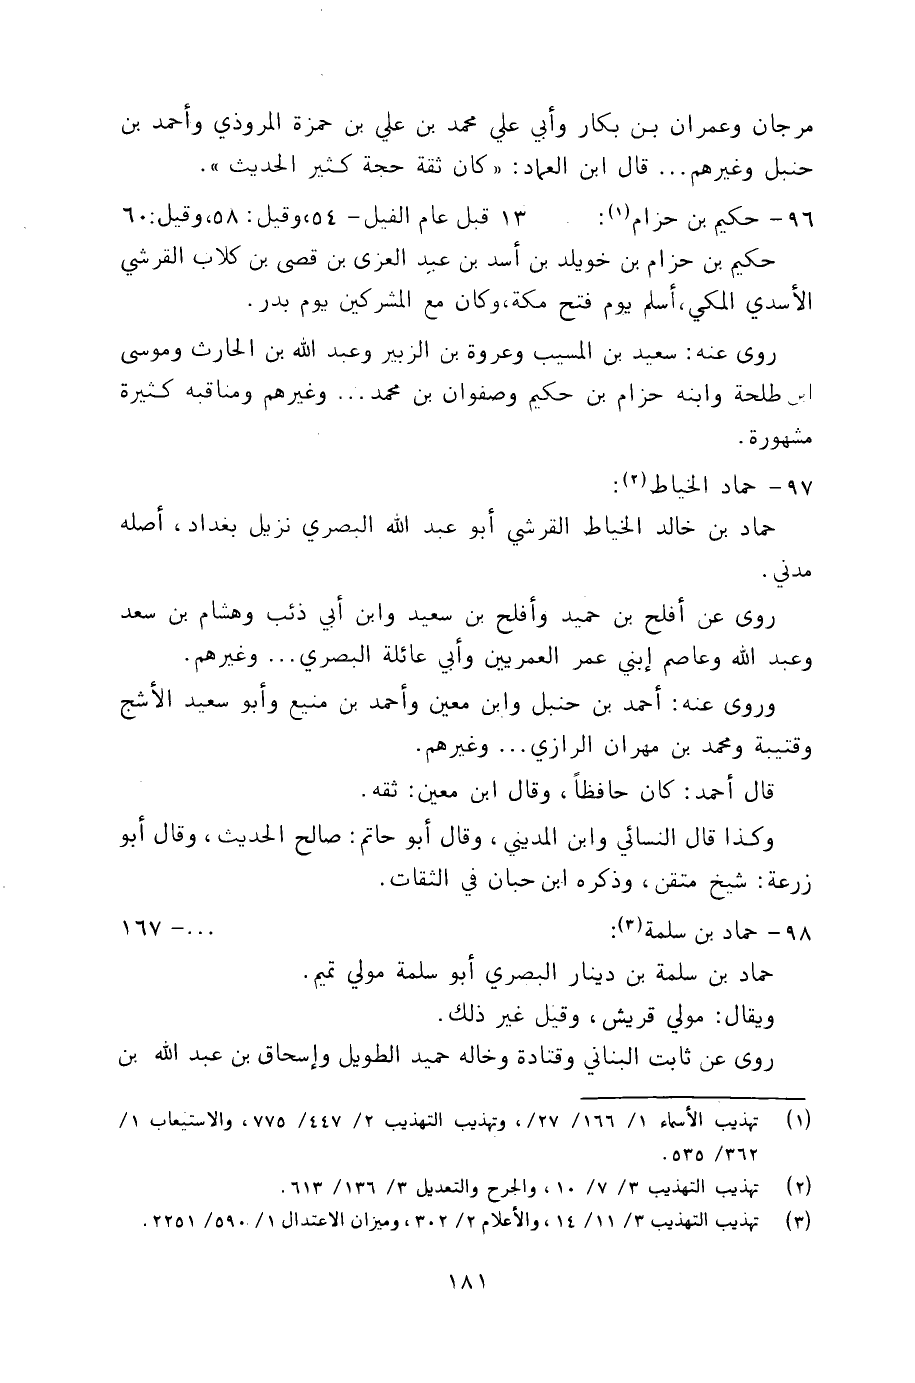 مرجان وعمران بن بكار وأبي علي محمد بن علي بن حمزة المروذي وأحمد بن
حنبل وغيرهم... قال ابن العماد: «كان ثقة حجة كثير الحديث».
٩٦ - حكيم بن حزام(١): ١٣ قبل عام الفيل - ٥٤،وقيل: ٥٨،وقيل:٦٠
حكيم بن حزام بن خويلد بن أسد بن عبد العزى بن قصى بن كلاب القرشي
الأسدي المكي،أسلم يوم فتح مكة،وكان مع المشركين يوم بدر.
روى عنه: سعيد بن المسيب وعروة بن الزبير وعبد الله بن الحارث وموسى
ابن طلحة وابنه حزام بن حكيم وصفوان بن محمد... وغيرهم ومناقبه كثيرة
مشهورة.
٩٧ - حماد الخياط(٢):
حماد بن خالد الخياط القرشي أبو عبد الله البصري نزيل بغداد، أصله
مدني.
روى عن أفلح بن حميد وأفلح بن سعيد وابن أبي ذئب وهشام بن سعد
وعبد الله وعاصم إبني عمر العمريين وأبي عائلة البصري... وغيرهم.
وروى عنه: أحمد بن حنبل وابن معين وأحمد بن منيع وأبو سعيد الأشج
وقتيبة ومحمد بن مهران الرازي... وغيرهم.
قال أحمد: كان حافظاً، وقال ابن معين: ثقه.
وكذا قال النسائي وابن المديني، وقال أبو حاتم: صالح الحديث، وقال أبو
زرعة: شيخ متقن، وذكره ابن حبان في الثقات.
٩٨ - حماد بن سلمة(٣): ...- ١٦٧
حماد بن سلمة بن دينار البصري أبو سلمة مولي تميم.
ويقال: مولي قريش، وقيل غير ذلك.
روى عن ثابت البناني وقتادة وخاله حميد الطويل وإسحاق بن عبد الله بن
(١) تهذيب الأسماء ١/ ١٦٦/ ٢٧/، وتهذيب التهذيب ٢/ ٤٤٧/ ٧٧٥، والاستيعاب ١/
٣٦٢/ ٥٣٥.
(٢) تهذيب التهذيب ٣/ ٧/ ١٠، والجرح والتعديل ٣/ ١٣٦/ ٦١٣.
(٣) تهذيب التهذيب ٣/ ١١/ ١٤، والأعلام ٢/ ٣٠٢، وميزان الاعتدال ١/ ٥٩٠/ ٢٢٥١.
١٨١